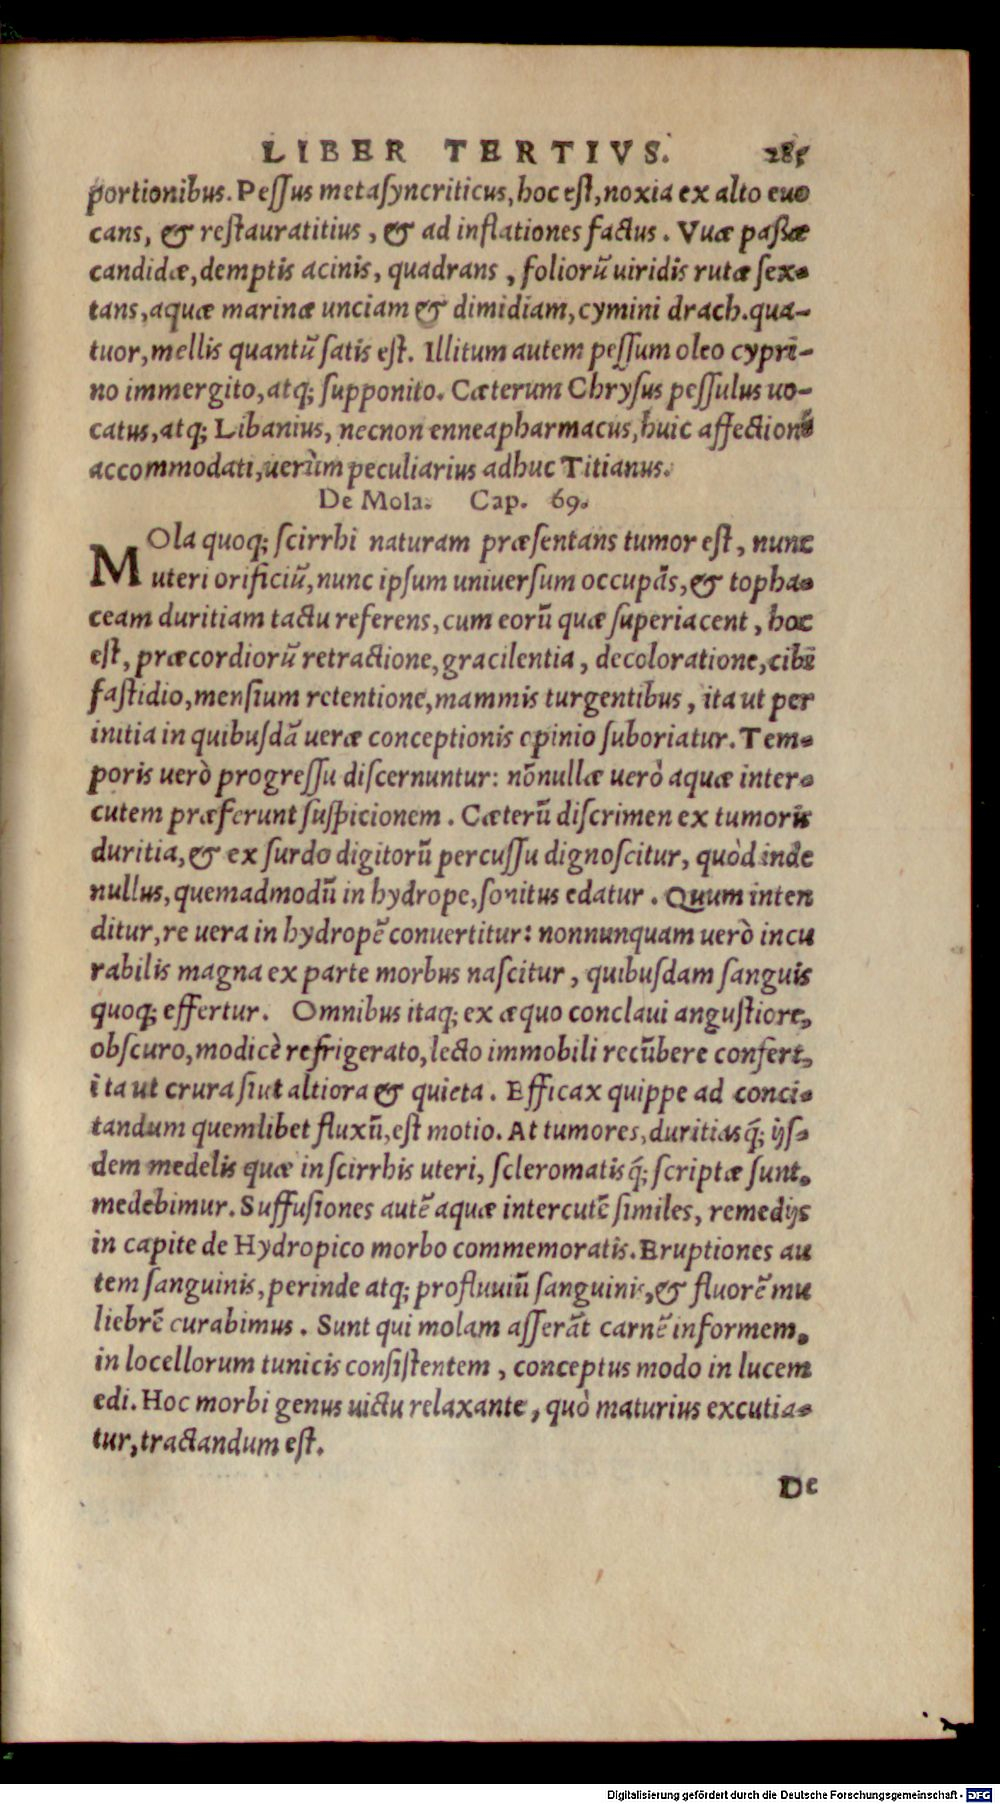 LIBER TERTIVS. 285
portionibus. Pessus metasyncriticus, hoc est, noxia ex alto euo
cans, & restauratitius, & ad inflationes factus. Vuæ passæ
candidæ, demptis acinis, quadrans, foliorũ uiridis rutæ sex-
tans, aquæ marinæ unciam & dimidiam, cymini drach. qua-
tuor, mellis quantũ satis est. Illitum autem pessum oleo cypri-
no immergito, atq; supponito. Cæterum Chrysus pessulus uo-
catus, atq; Libanius, necnon enneapharmacus, huic affectioni
accommodati, uerùm peculiarius adhuc Titianus.
De Mola. Cap. 69.
MOla quoq; scirrhi naturam præsentans tumor est, nunc
uteri orificiũ, nunc ipsum uniuersum occupãs, & topha-
ceam duritiam tactu referens, cum eorũ quæ superiacent, hoc
est, præcordiorũ retractione, gracilentia, decoloratione, cibi
fastidio, mensium retentione, mammis turgentibus, ita ut per
initia in quibusdã ueræ conceptionis opinio suboriatur. Tem-
poris uerò progressu discernuntur: nõnullæ uerò aquæ inter-
cutem præferunt suspicionem. Cæterũ discrimen ex tumoris
duritia, & ex surdo digitorũ percussu dignoscitur, quòd inde
nullus, quemadmodũ in hydrope, sonitus edatur. Quum inten
ditur, re uera in hydropẽ conuertitur: nonnunquam uerò incu
rabilis magna ex parte morbus nascitur, quibusdam sanguis
quoq; effertur. Omnibus itaq; ex æquo conclaui angustiore,
obscuro, modicè refrigerato, lecto immobili recũbere confert,
ita ut crura siut altiora & quieta. Efficax quippe ad conci-
tandum quemlibet fluxũ, est motio. At tumores, duritiasq́; ijs-
dem medelis quæ in scirrhis uteri, scleromatisq́; scriptæ sunt,
medebimur. Suffusiones autẽ aquæ intercutẽ similes, remedijs
in capite de Hydropico morbo commemoratis. Eruptiones au
tem sanguinis, perinde atq; profluuiũ sanguinis, & fluorẽ mu
liebrẽ curabimus. Sunt qui molam asserãt carnẽ informem,
in locellorum tunicis consistentem, conceptus modo in lucem
edi. Hoc morbi genus uictu relaxante, quò maturius excutia-
tur, tractandum est.
De
Digitalisierung gefördert durch die Deutsche Forschungsgemeinschaft - DFG